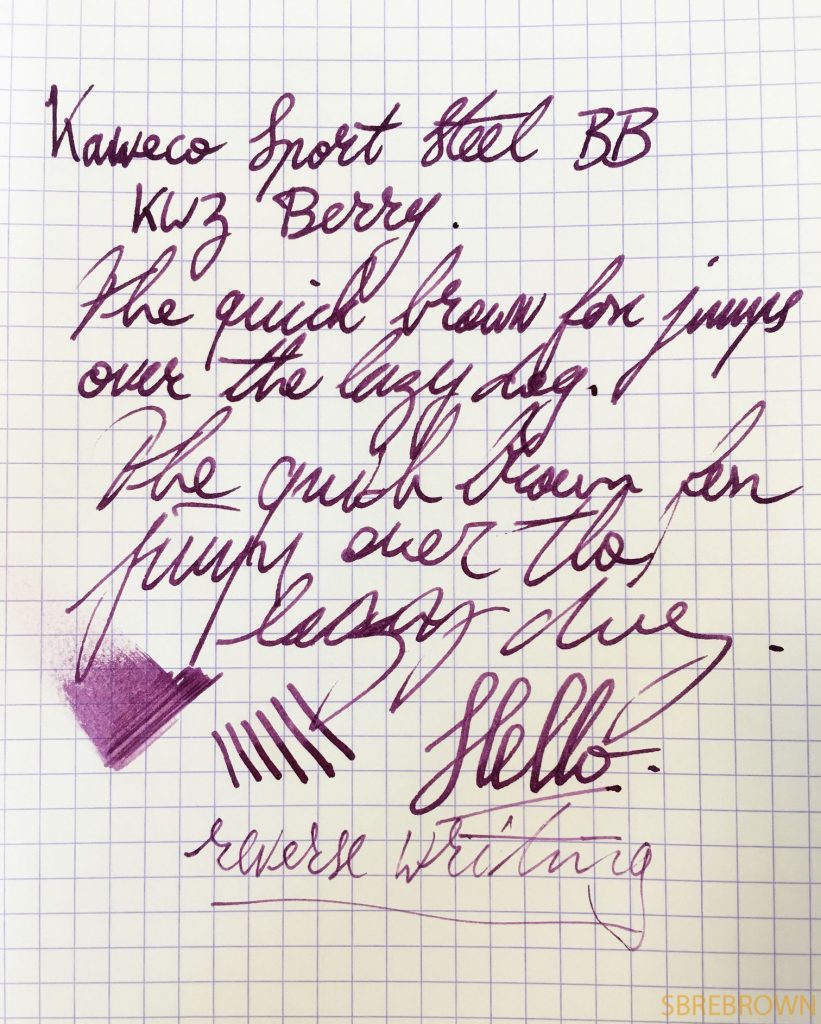 Kaweco Sport Steel BB
KWZ Berry.
The quick brown fox jumps
over the lazy dog.
The quick brown fox
jumps over the
lazy dog.
Hello.
reverse writing
SBREBROWN